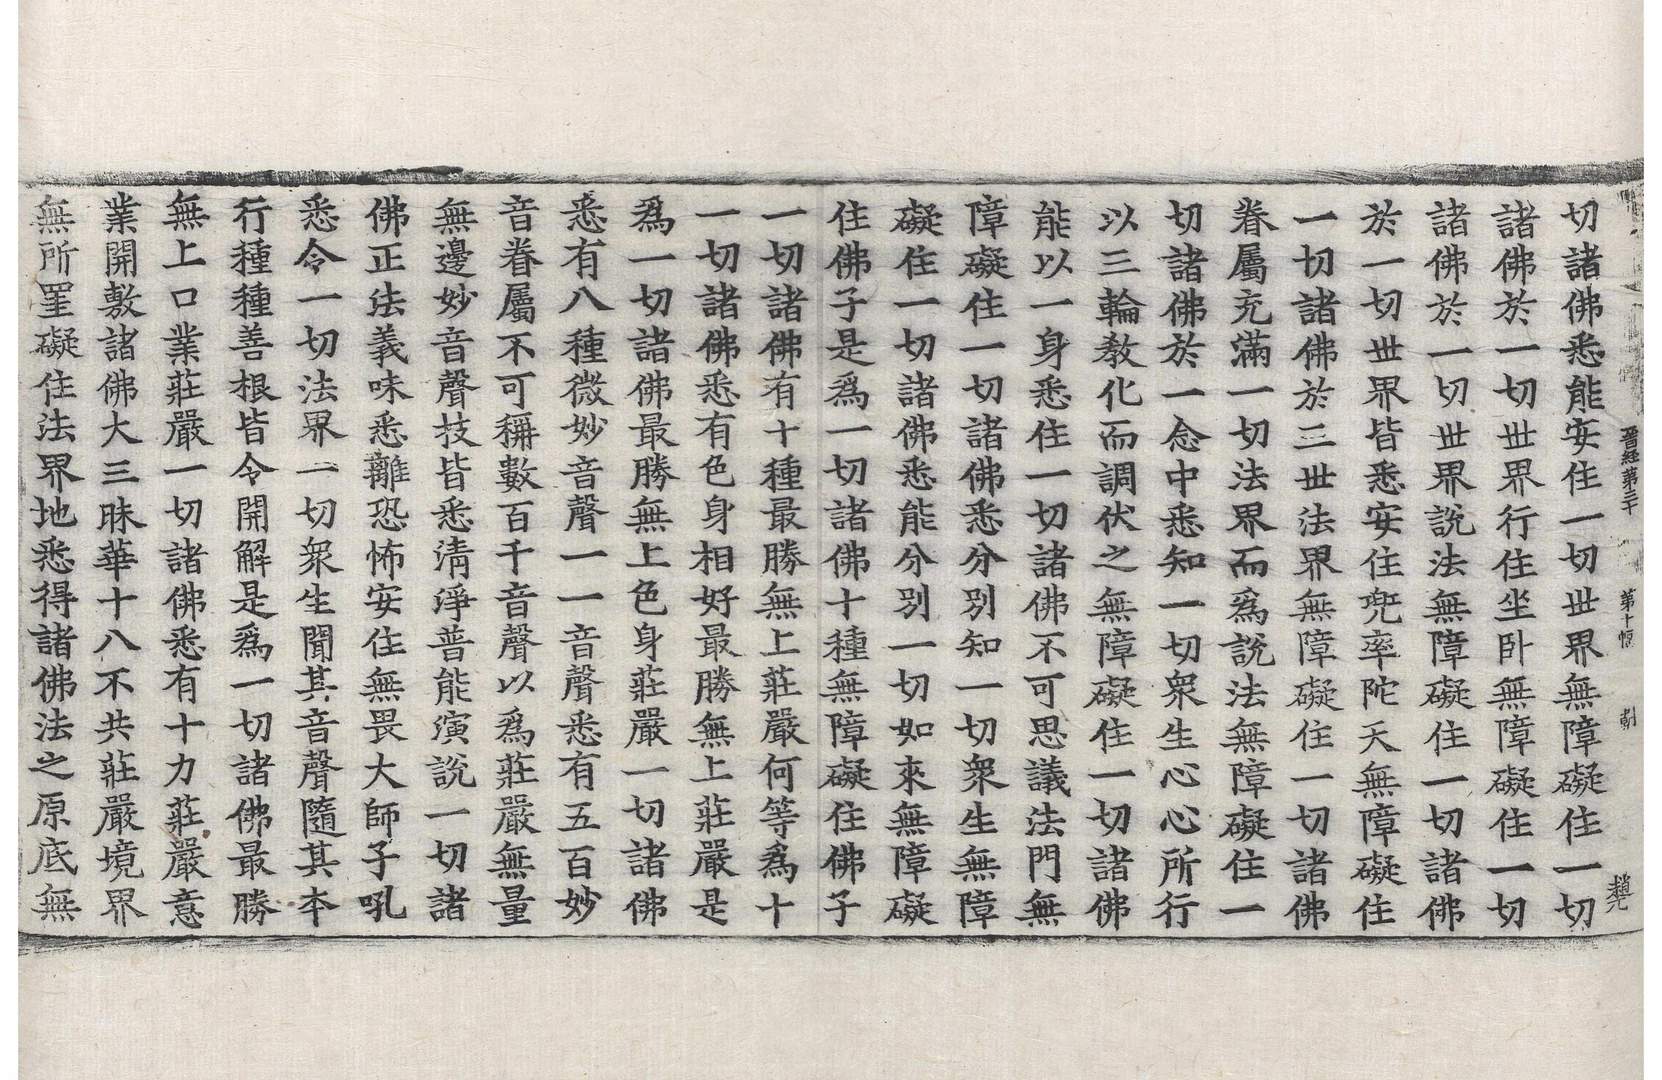 晉經第三十 第十幅
切諸佛悉能安住一切世界無障礙住一切
諸佛於一切世界行住坐卧無障礙住一切
諸佛於一切世界說法無障礙住一切諸佛
於一切世界皆悉安住兜率陀天無障礙住
一切諸佛於三世法界無障礙住一切諸佛
眷屬充滿一切法界而爲說法無障礙住一
切諸佛於一念中悉知一切衆生心心所行
以三輪教化而調伏之無障礙住一切諸佛
能以一身悉住一切諸佛不可思議法門無
障礙住一切諸佛悉分別知一切衆生無障
礙住一切諸佛悉能分別一切如來無障礙
住佛子是爲一切諸佛十種無障礙住佛子
一切諸佛有十種最勝無上莊嚴何等爲十
一切諸佛悉有色身相好最勝無上莊嚴是
爲一切諸佛最勝無上色身莊嚴一切諸佛
悉有八種微妙音聲一一音聲悉有五百妙
音眷屬不可稱數百千音聲以爲莊嚴無量
無邊妙音聲技皆悉清淨普能演說一切諸
佛正法義味悉離恐怖安住無畏大師子吼
悉令一切法界一切衆生聞其音聲隨其本
行種種善根皆令開解是爲一切諸佛最勝
無上口業莊嚴一切諸佛悉有十力莊嚴意
業開敷諸佛大三昧華十八不共莊嚴境界
無所罣礙住法界地悉得諸佛法之原底無